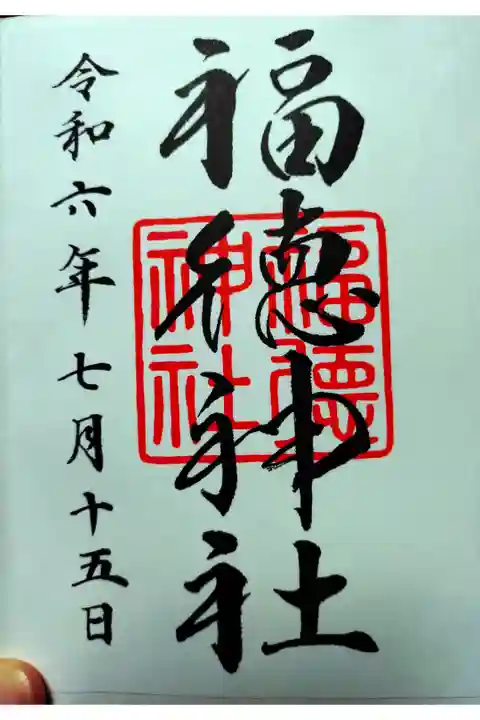 福徳神社
福徳神社
令和六年七月十五日